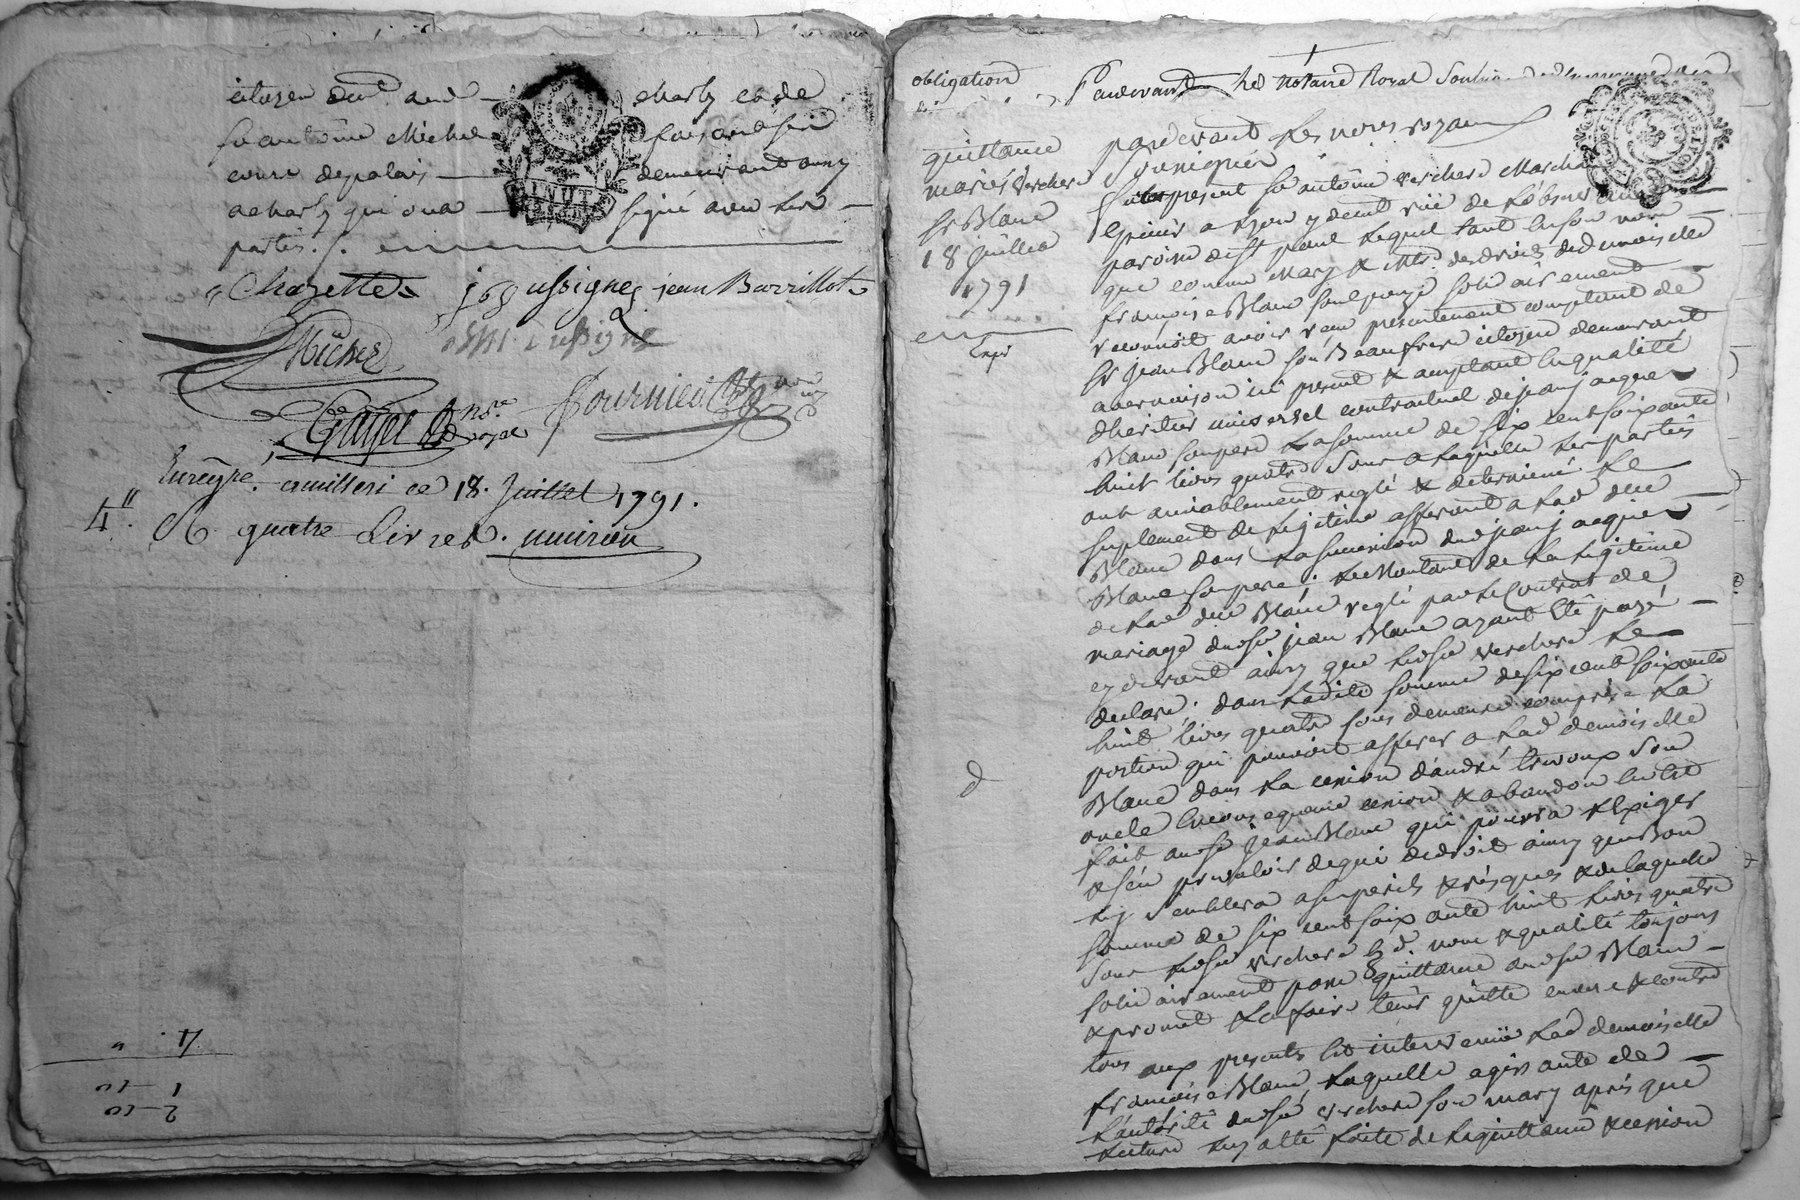 citoyen dud. aud charly et de
sr antoine Michel faisant sa
coure depalais demeurant audy
acharly qui ont signé avec les
parties ./.
Chazette jb Dussigne jean Barrillot
Michel Dussigne
Gayet nre royal Fournier
Enregré. amilleri ce 18. Juillet 1791.
4ᴴ. R quatre Livres.
obligation Pardevant les notaire Royal Soussignés
quittance
mariés verchere
sr Blanc
18 juillet
1791
Expé
pardevant les nores royaux
soussignés
fut present sr antoine verchere Marchand
Epicier a Lyon y demt rüe de
paroisse de st paul lequel tant en son nom
que comme Mary & Mtre des droits de demoiselle
françoise Blanc son epouze solidairement
reconnoit avoir recu presentement comptant de
sr jean Blanc son Beaufrere citoyen demeurant
avernaison ici present & acceptant en qualité
dheritier universel contractuel de jean jacques
Blanc son pere La somme de six cent soixante
huit livres quatre sous a laquelle les parties
ont amiablement reglé & determiné Le
suplement de legitime afferant a Lad. dlle
Blanc dans La succession dud jean jacques
Blanc son pere ; Le Montant de La legitime
de Lad dlle Blanc reglé par le Contrat de
mariage dudsr jean Blanc ayant été payé
cy devant ainsy que ledsr verchere Le
declare ; dans Ladite somme de six cent soixante
huit livres quatre sous demeure comprise La
portion qui pouvoit afferer a Lad demoiselle
Blanc dans La cession d'andré trevoux son
oncle en consequence cession & abandon en est
fait audsr jean Blanc qui pourra Exiger
& s'en prevaloir de qui de droit ainsy que Bon
luy semblera a ses perils & risques & de laquelle
somme de six cent soixante huit Livres quatre
sous ledsr verchere Esd. nom & qualité toujours
solidairement passe quittance audsr Blanc
& promet La faire tenir quitte envers & contre
tous aux presentes est intervenüe Lad demoiselle
françoise Blanc Laquelle agissante de
L'autorité dudsr verchere son mary après que
Lecture luy a été faite de la quittance & cession
4.
1 - 10
2 - 10